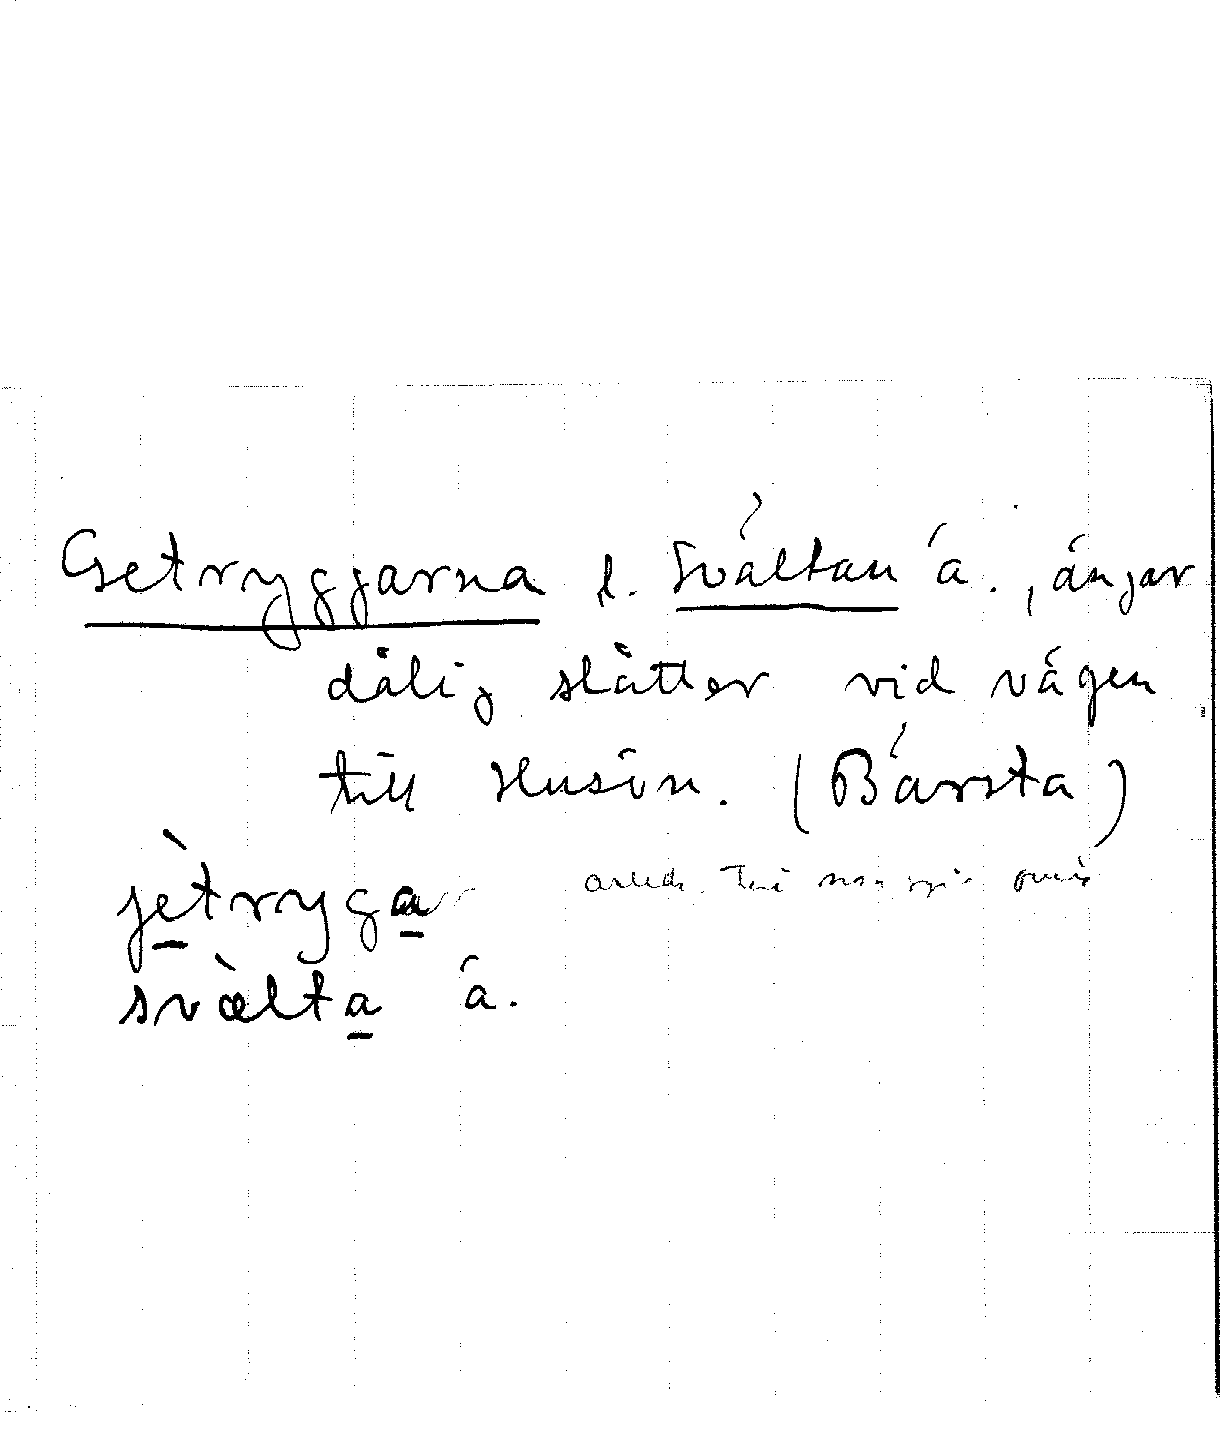 Getryggarna l. Svältan ä., ängar
dålig slåtter vid vägen
till Husön. (Bärsta)
jètryga
svàlta ä.